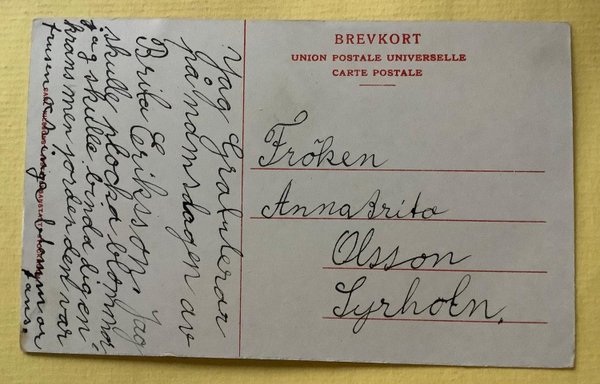 BREVKORT
UNION POSTALE UNIVERSELLE
CARTE POSTALE
Jag Gratulerar
på namnsdagen av
Brita Eriksson. Jag
skulle plocka blommor
jag skulle binda dig en
krans men jorden den var
frusen inga blommor
fans.
Fröken
Anna Brita
Olsson
Syrholn.